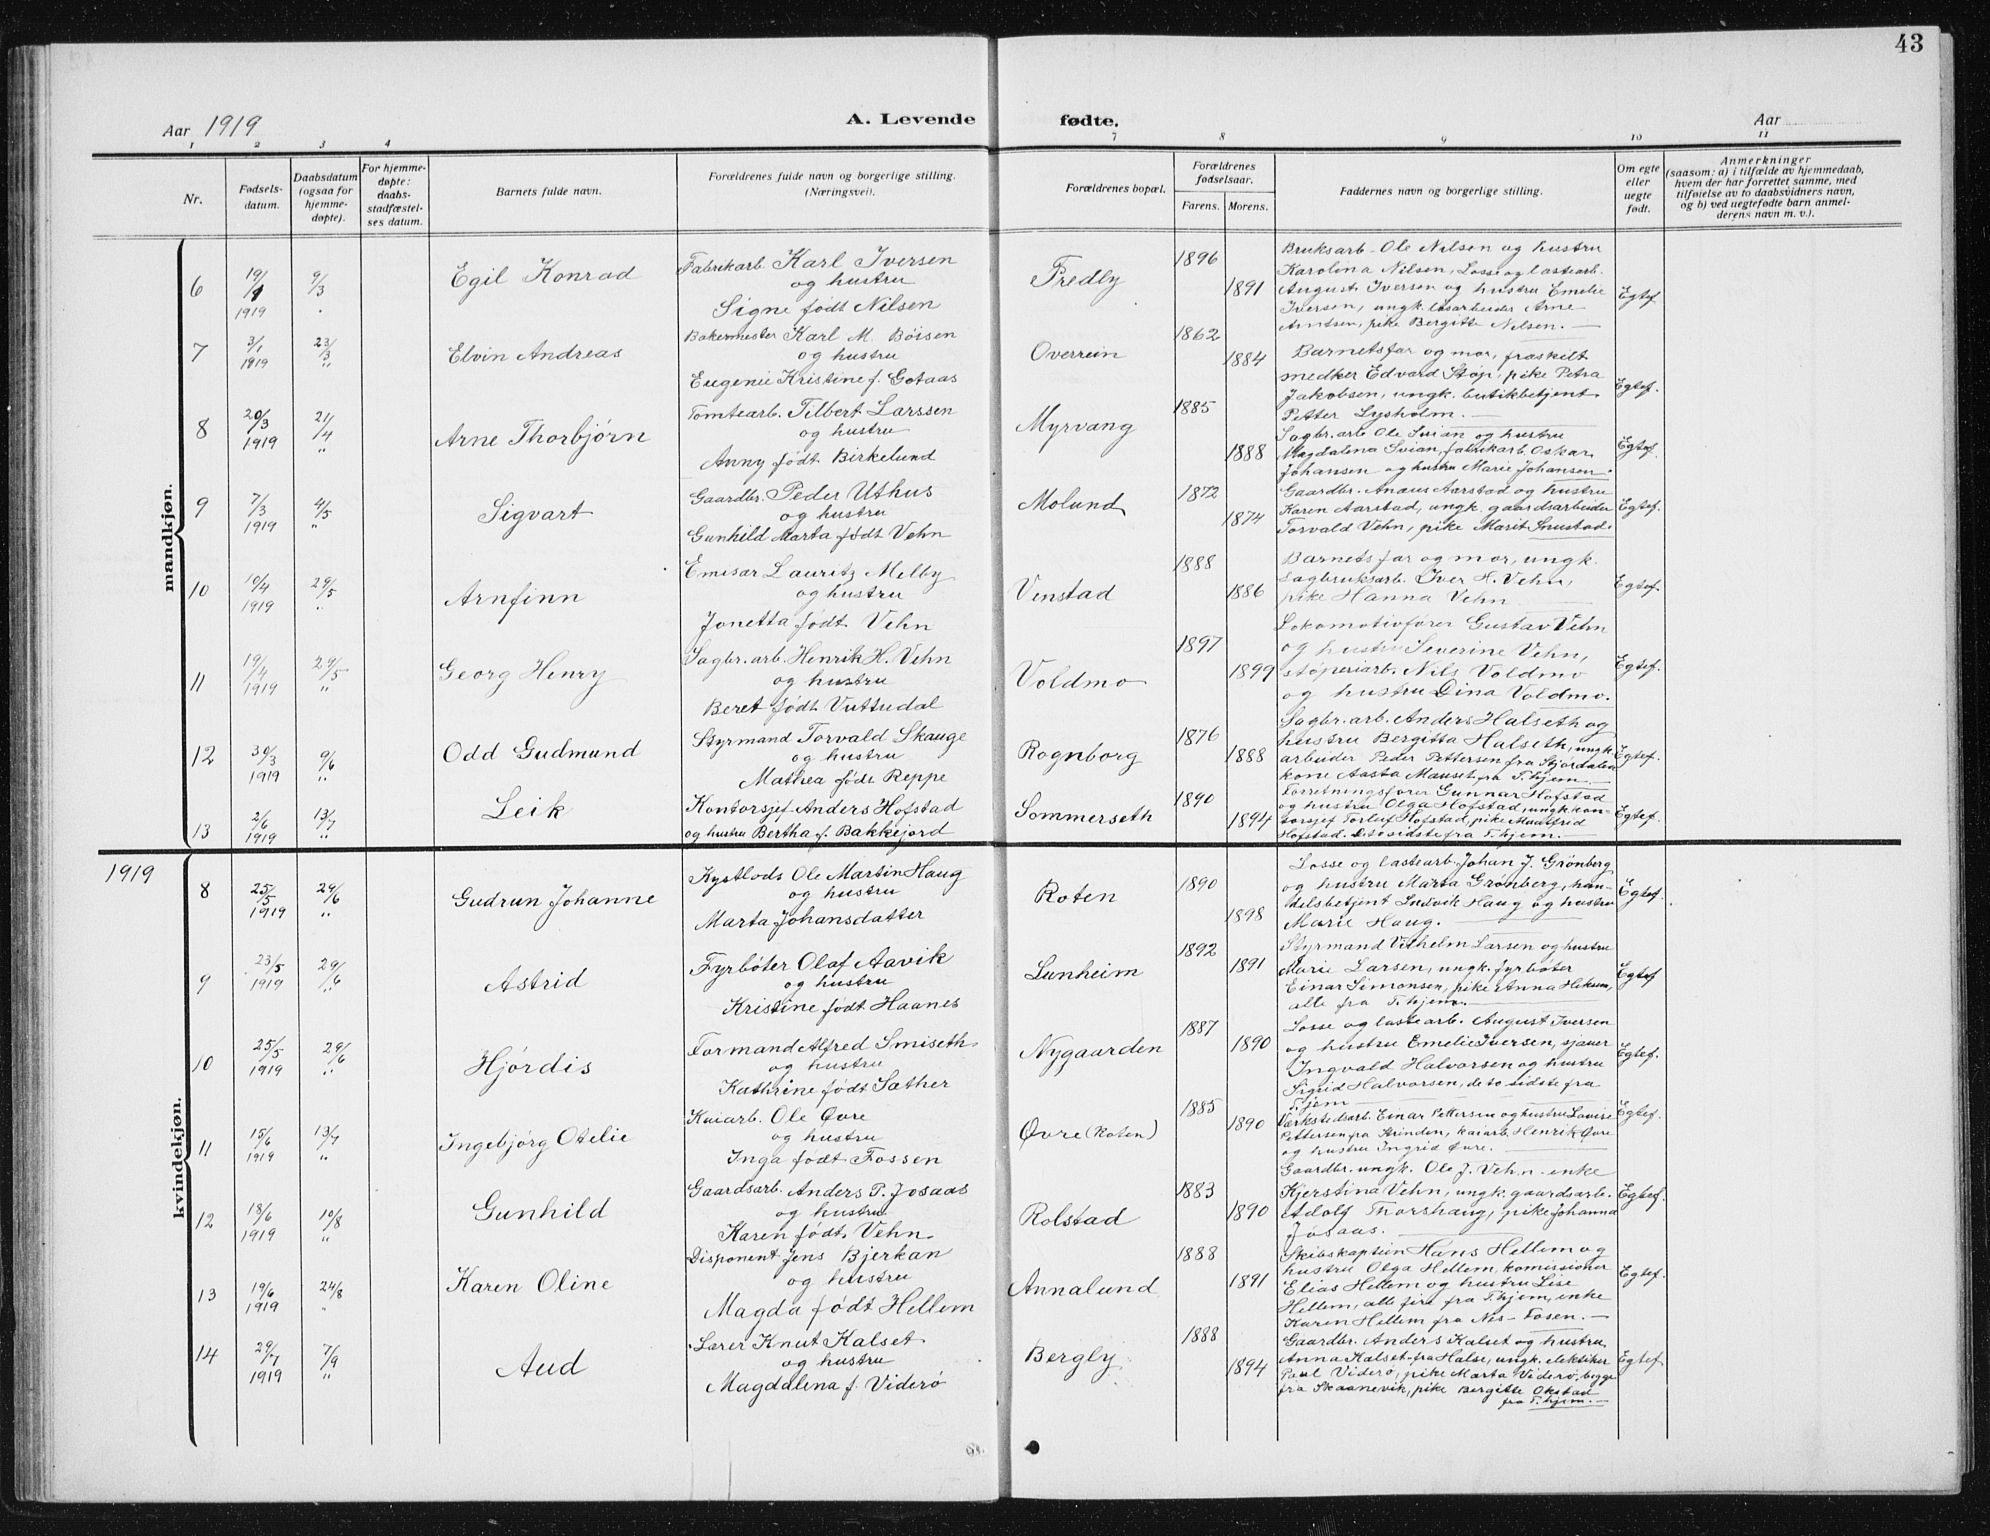 43
Aar 1919
A. Levende fødte.
Aar
1 2 3 4 7 8 9 10 11
Nr.
Fødsels-
datum.
Daabsdatum
(ogsaa for
hjemme-
døpte).
For hjemme-
døpte:
daabs-
stadfæstel-
ses datum.
Barnets fulde navn.
Forældrenes fulde navn og borgerlige stilling.
(Næringsvei).
Forældrenes bopæl.
Forældrenes
fødselsaar.
Farens. Morens.
Faddernes navn og borgerlige stilling.
Om egte
eller
uegte
født.
Anmerkninger
(saasom: a) i tilfælde av hjemmedaab,
hvem der har forrettet samme, med
tilføielse av to daabsvidners navn,
og b) ved uegtefødte barn anmel-
derens navn m. v.).
mandkjøn.
6 19/1 1919 9/3 Egil Konrad
Fabrikarb. Karl Iversen
og hustru
Signe født Nilsen
Fredly 1896 1891
Bruksarb. Ole Nilsen og hustru
Karolina Nilsen, Losse og lastearb.
August Iversen og hustru Emelie
Iversen, ungk. løsarbeider Arne
Arntsen, pike Bergitte Nilsen.
Egtef.
7 3/1 1919 23/3 " Elvin Andreas
Bakermester Karl M. Böisen
og hustru
Eugenie Kristine f. Gotaas
Overrein 1862 1884
Barnets far og mor, fraskilt
medker Edvard Støp, pike Petra
Jakobsen, ungk. butikbetjent
Petter Lysholm.
Egtef.
8 20/3 1919 21/4 " Arne Thorbjørn
Tomtearb. Tilbert Larssen
og hustru
Anny født Birkelund
Myrvang 1885 1888
Sagbr. arb. Ole Svian og hustru
Magdalena Svian, fabrikarb. Oskar
Johansen og hustru Marie Johansen.
Egtef.
9 7/3 1919 4/5 " Sigvart
Gaardbr. Peder Uthus
og hustru
Gunhild Marta født Vehn
Molund 1872 1874
Gaardbr. Anæus Aarstad og hustru
Karen Aarstad, ungk. gaardsarbeider
Torvald Vehn, pike Marit Snustad.
Egtef.
10 10/4 1919 29/5 " Arnfinn
Emisær Lauritz Melby
og hustru
Jonetta født Vehn
Venstad 1888 1886
Barnets far og mor, ungk.
sagbruksarb. Iver H. Vehn,
pike Hanna Vehn
Egtef.
11 19/4 1919 29/5 " Georg Henry
Sagbr. arb. Henrik H. Vehn
og hustru
Beret født Vuttudal
Voldmo 1897 1899
Lokomotivfører Gustav Vehn
og hustru Severine Vehn,
støperiarb. Nils Voldmo
og hustru Dina Voldmo.
Egtef.
12 30/3 1919 9/6 " Odd Gudmund
Styrmand Torvald Skauge
og hustru
Mathea født Reppe
Rognborg 1876 1888
Sagbr. arb. Anders Halseth og
hustru Bergitta Halseth, ungk.
arbeider Peder Pettersen fra Stjørdalen
kone Aasta Mauset fra T.hjem.
Egtef.
13 2/6 1919 13/7 " Leik
Kontorsjef Anders Hofstad
og hustru Bertha f. Bakkejord
Sommerseth 1890 1894
Forretningsfører Gunnar Hofstad
og hustru Olga Hofstad, ungk. kon-
torsjef Torluf Hofstad, pike Maalfrid
Hofstad. De to sidste fra T.hjem.
Egtef.
1919
kvindekjøn.
8 25/5 1919 29/6 " Gudrun Johanne
Kystlods Ole Martin Haug
og hustru
Marta Johansdatter
Roten 1890 1898
Losse og lastearb. Johan J. Grønberg
og hustru Marta Grønberg, han-
delsbetjent Ludvik Haug og hustru
Marie Haug.
Egtef.
9 23/5 1919 29/6 " Astrid
Fyrbøter Olaf Aavik
og hustru
Kristine født Haanes
Lunheim 1892 1891
Styrmand Vilhelm Larsen og hustru
Marie Larsen, ungk. fyrbøter
Einar Simonsen, pike Anna Heksem,
alle fra T.hjem.
Egtef
10 25/5 1919 29/6 " Hjørdis
Formand Alfred Smiseth
og hustru
Kathrine født Sæther
Nygaarden 1887 1890
Losse og lastearb. August Iversen
og hustru Emelie Iversen, sjauer
Ingvald Halvorsen og hustru
Sigrid Halvorsen, de to sidste fra
T.hjem
Egtef.
11 15/6 1919 13/7 " Ingebjørg Otelie
Kaiarb. Ole Øvre
og hustru
Inga født Fossen
Øvre (Roten) 1885 1890
Værkstedsarb. Einar Pettersen og hustru Lovise
Pettersen fra Strinden, kaiarb. Henrik Øvre
og hustru Ingrid Øvre.
Egtef.
12 18/6 1919 10/8 " Gunhild
Gaardsarb. Anders P. Josaas
og hustru
Karen født Vehn
Rolstad 1883 1890
Gaardbr. ungk. Ole J. Vehn, enke
Kjerstina Vehn, ungk. gaardsarb.
Adolf Thorshaug, pike Johanna
Jøsaas.
Egtef.
13 19/6 1919 24/8 " Karen Oline
Disponent Jens Bjerkan
og hustru
Magda født Hellem
Annalund 1888 1891
Skibskaptein Hans Hellem og
hustru Olga Hellem, komissioner
Elias Hellem og hustru Lise
Hellem, alle fire fra T.hjem, enke
Karen Hellem fra Nes - Fosen.
Egtef.
14 29/7 1919 7/9 " Aud
Lærer Knut Kalset
og hustru
Magdalena f. Viderö
Bergly 1888 1894
Gaardbr. Anders Kalset og hustru
Anna Kalset fra Halse, ungk. elektiker
Paul Viderö, pike Marta Viderö, begge
fra Skaanevik, pike Bergitte Okstad
fra T.hjem.
Egtef.